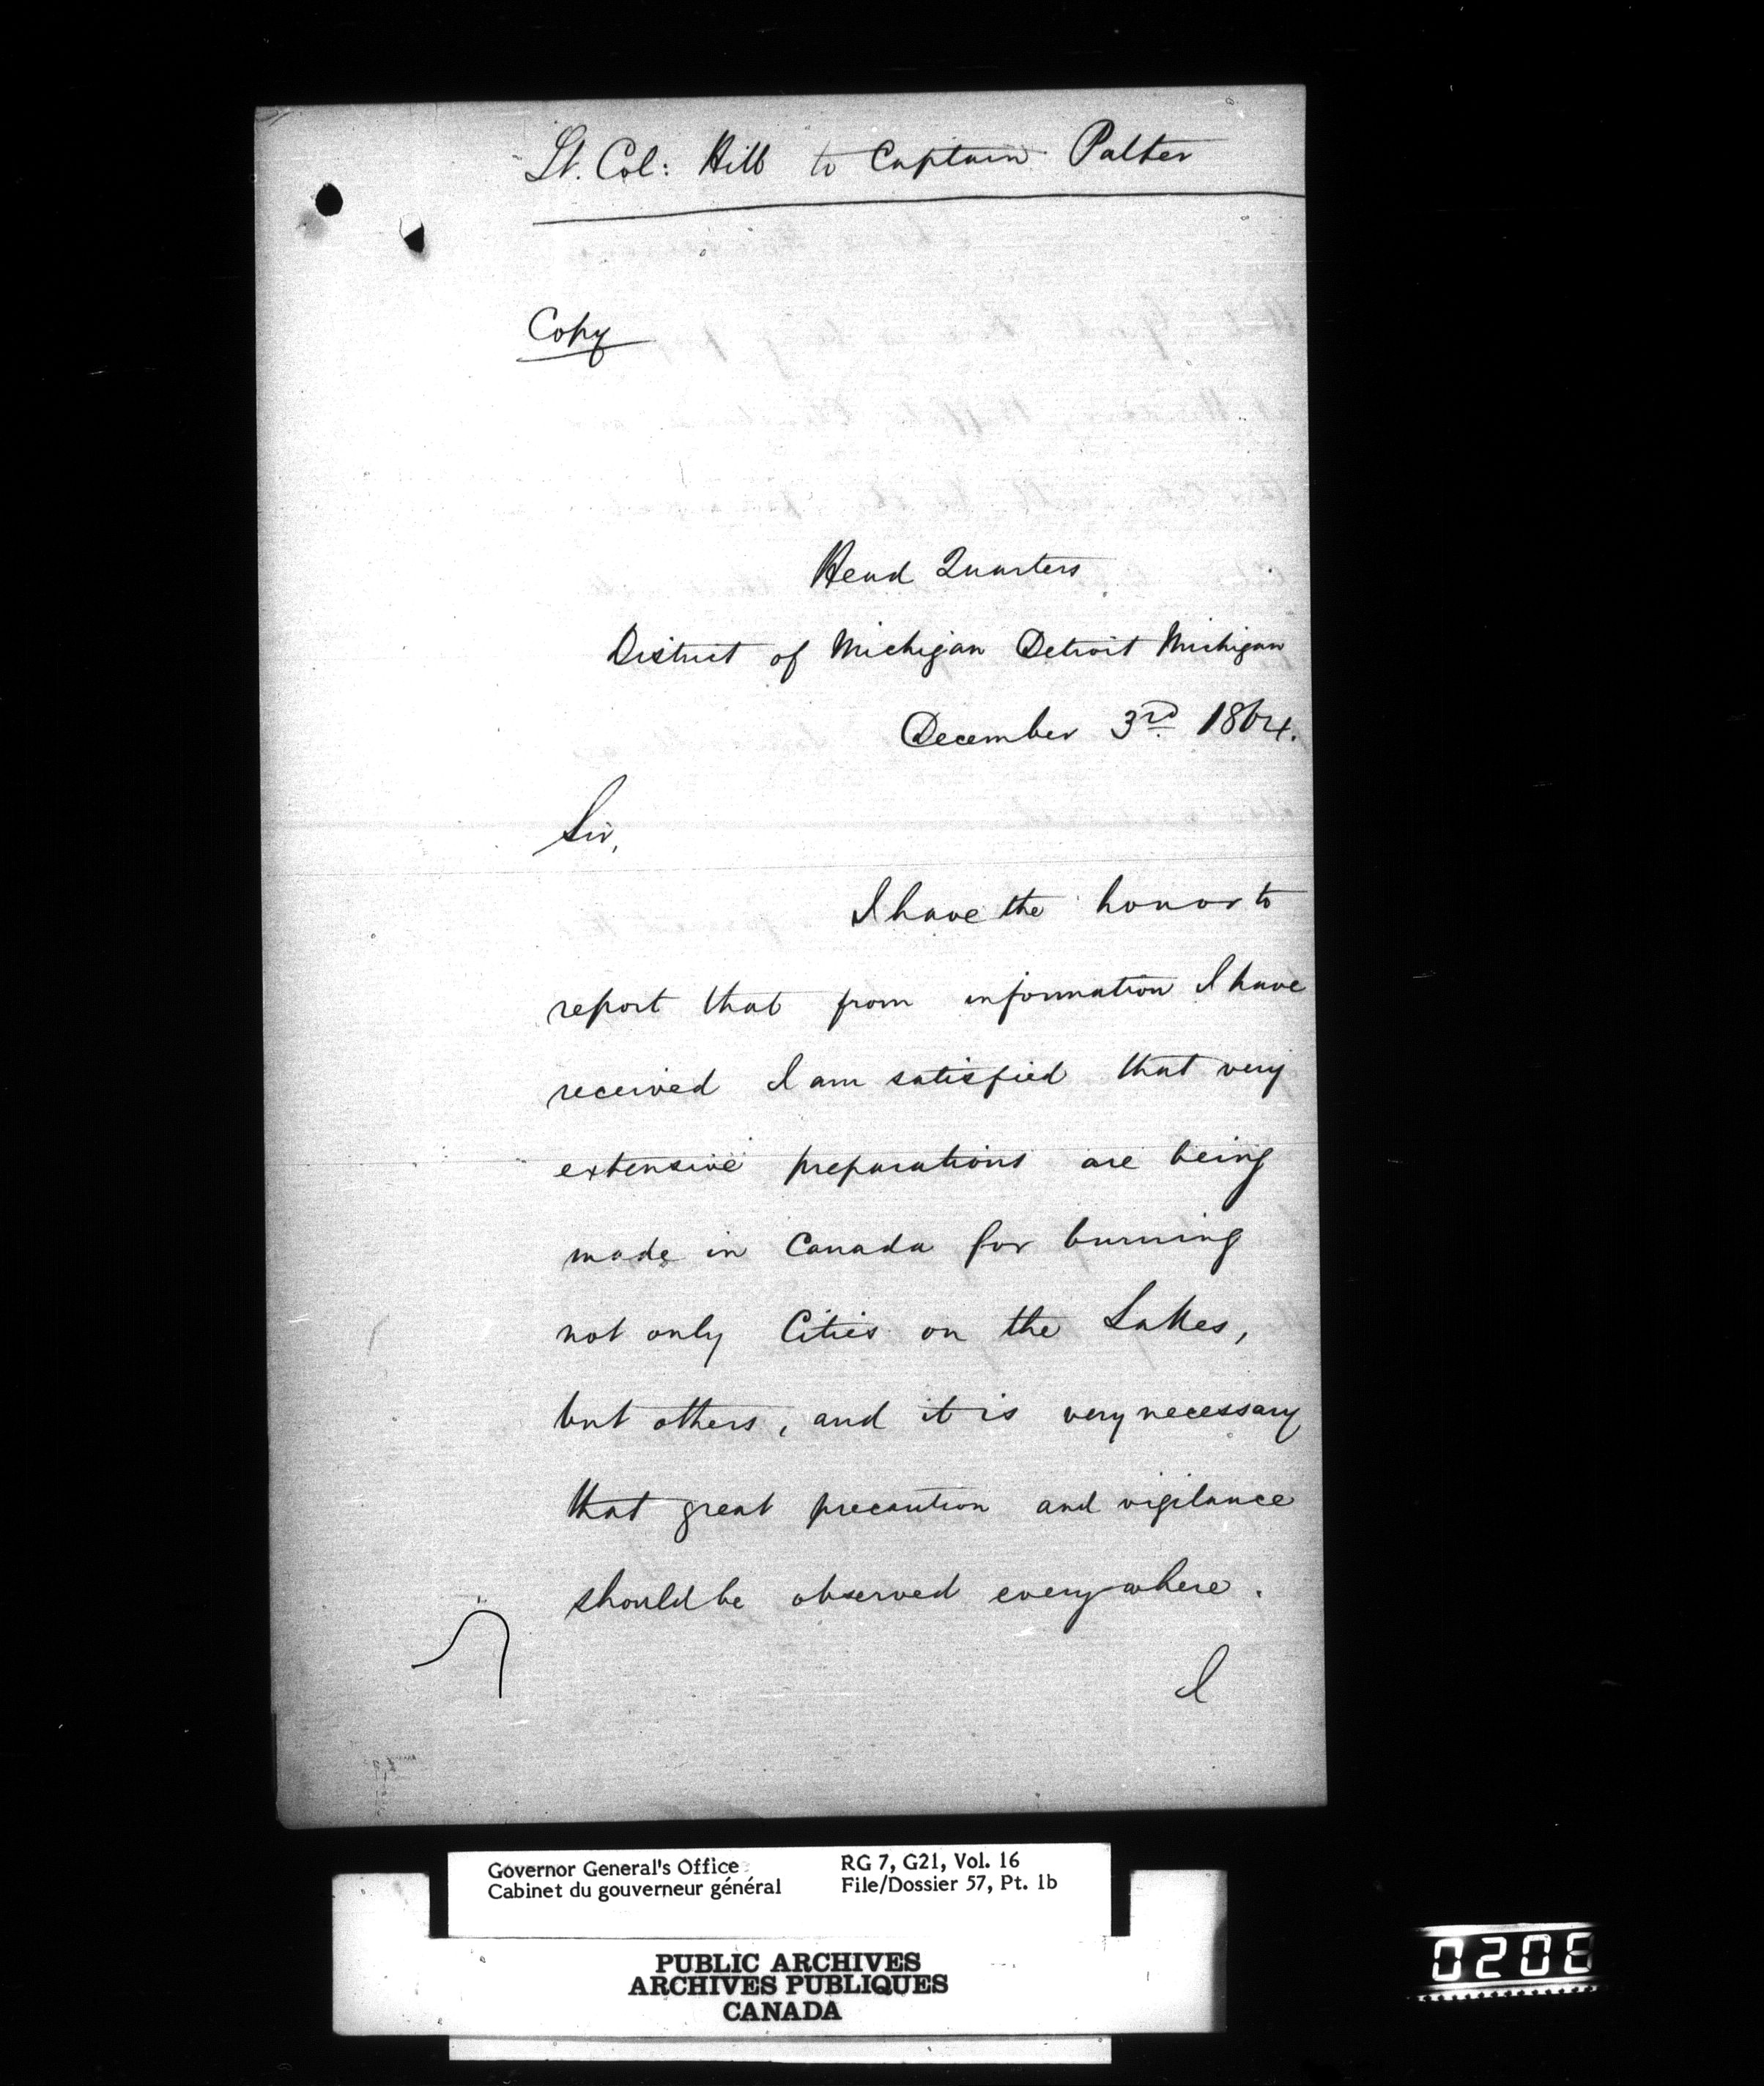 Lt. Col: Hill to Captain Patter
Copy
Head Quarters
District of Michigan Detroit Michigan
December 3rd 1864.
Sir,
I have the honor to
report that from information I have
received I am satisfied that very
extensive preparations are being
made in Canada for burning
not only Cities on the Lakes,
but others, and it is very necessary
that great precaution and vigilance
should be observed everywhere.
I
Governor General's Office
Cabinet du gouverneur général
RG 7, G21, Vol. 16
File/Dossier 57, Pt. 1b
PUBLIC ARCHIVES
ARCHIVES PUBLIQUES
CANADA